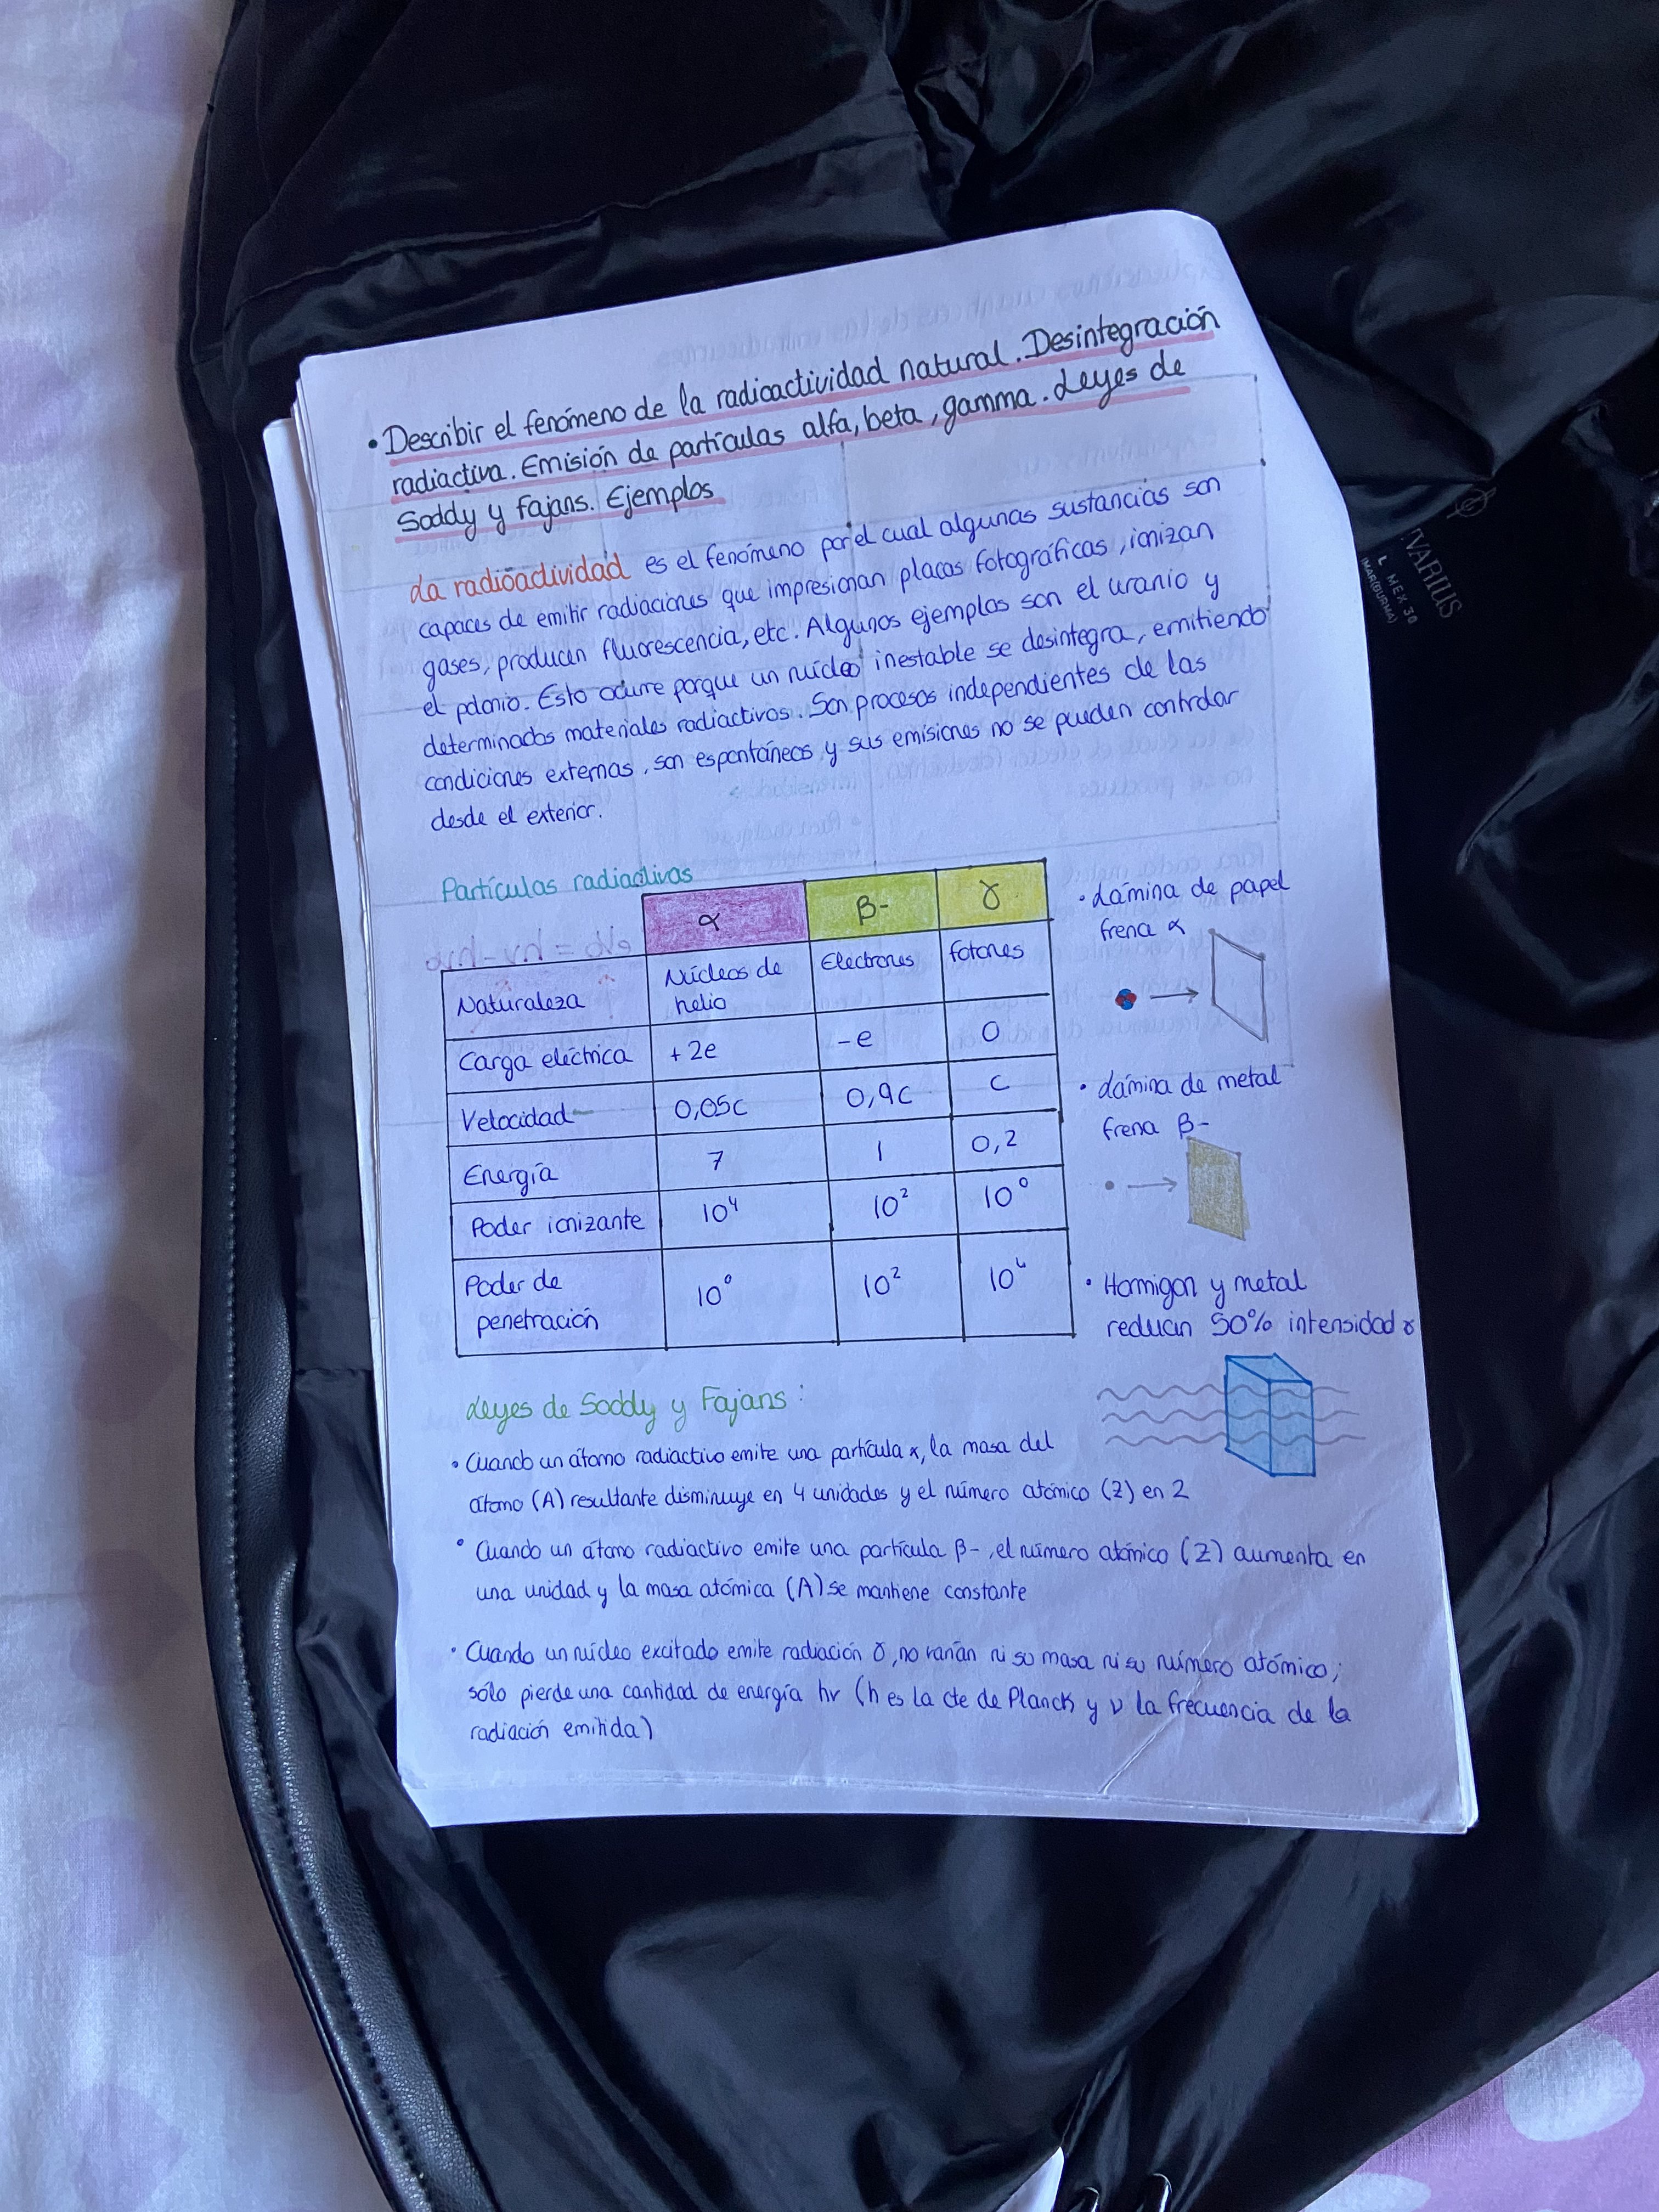 • Describir el fenómeno de la radioactividad natural. Desintegración
radiactiva. Emisión de partículas alfa, beta, gamma. Leyes de
Soddy y Fajans. Ejemplos
La radioactividad es el fenómeno por el cual algunas sustancias son
capaces de emitir radiaciones que impresionan placas fotográficas, ionizan
gases, producen fluorescencia, etc. Algunos ejemplos son el uranio y
el polonio. Esto ocurre porque un núcleo inestable se desintegra, emitiendo
determinados materiales radiactivos. Son procesos independientes de las
condiciones externas, son espontáneos y sus emisiones no se pueden controlar
desde el exterior.
Partículas radiactivas
α β- γ
Naturaleza Núcleos de helio Electrones fotones
Carga eléctrica +2e -e 0
Velocidad 0,05c 0,9c c
Energía 7 1 0,2
Poder ionizante 10⁴ 10² 10⁰
Poder de penetración 10⁰ 10² 10⁴
• Lámina de papel
frena α
• Lámina de metal
frena β-
• Hormigon y metal
reducen 50% intensidad γ
Leyes de Soddy y Fajans:
• Cuando un átomo radiactivo emite una partícula α, la masa del
átomo (A) resultante disminuye en 4 unidades y el número atómico (Z) en 2
• Cuando un átomo radiactivo emite una partícula β-, el número atómico (Z) aumenta en
una unidad y la masa atómica (A) se mantiene constante
• Cuando un núcleo excitado emite radiación γ, no varían ni su masa ni su número atómico;
sólo pierde una cantidad de energía hν (h es la cte de Planck y ν la frecuencia de la
radiación emitida)
IVARIUS
L MEX 30